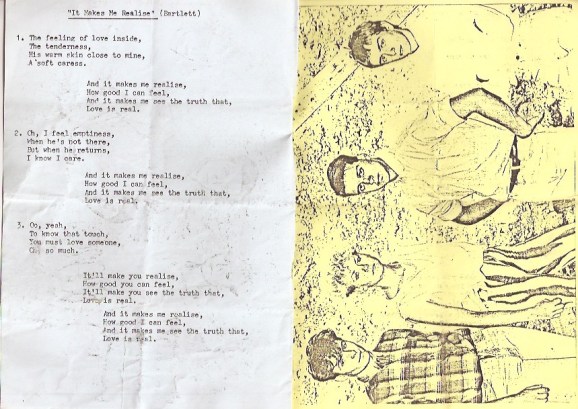 "It Makes Me Realise" (Bartlett)
1. The feeling of love inside,
The tenderness,
His warm skin close to mine,
A soft caress.
And it makes me realise,
How good I can feel,
And it makes me see the truth that,
Love is real.
2. Oh, I feel emptiness,
When he's not there,
But when he returns,
I know I care.
And it makes me realise,
How good I can feel,
And it makes me see the truth that,
Love is real.
3. Oo, yeah,
To know that touch,
You must love someone,
Oh so much.
It'll make you realise,
How good you can feel,
It'll make you see the truth that,
Love is real.
And it makes me realise,
How good I can feel,
And it makes me see the truth that,
Love is real.